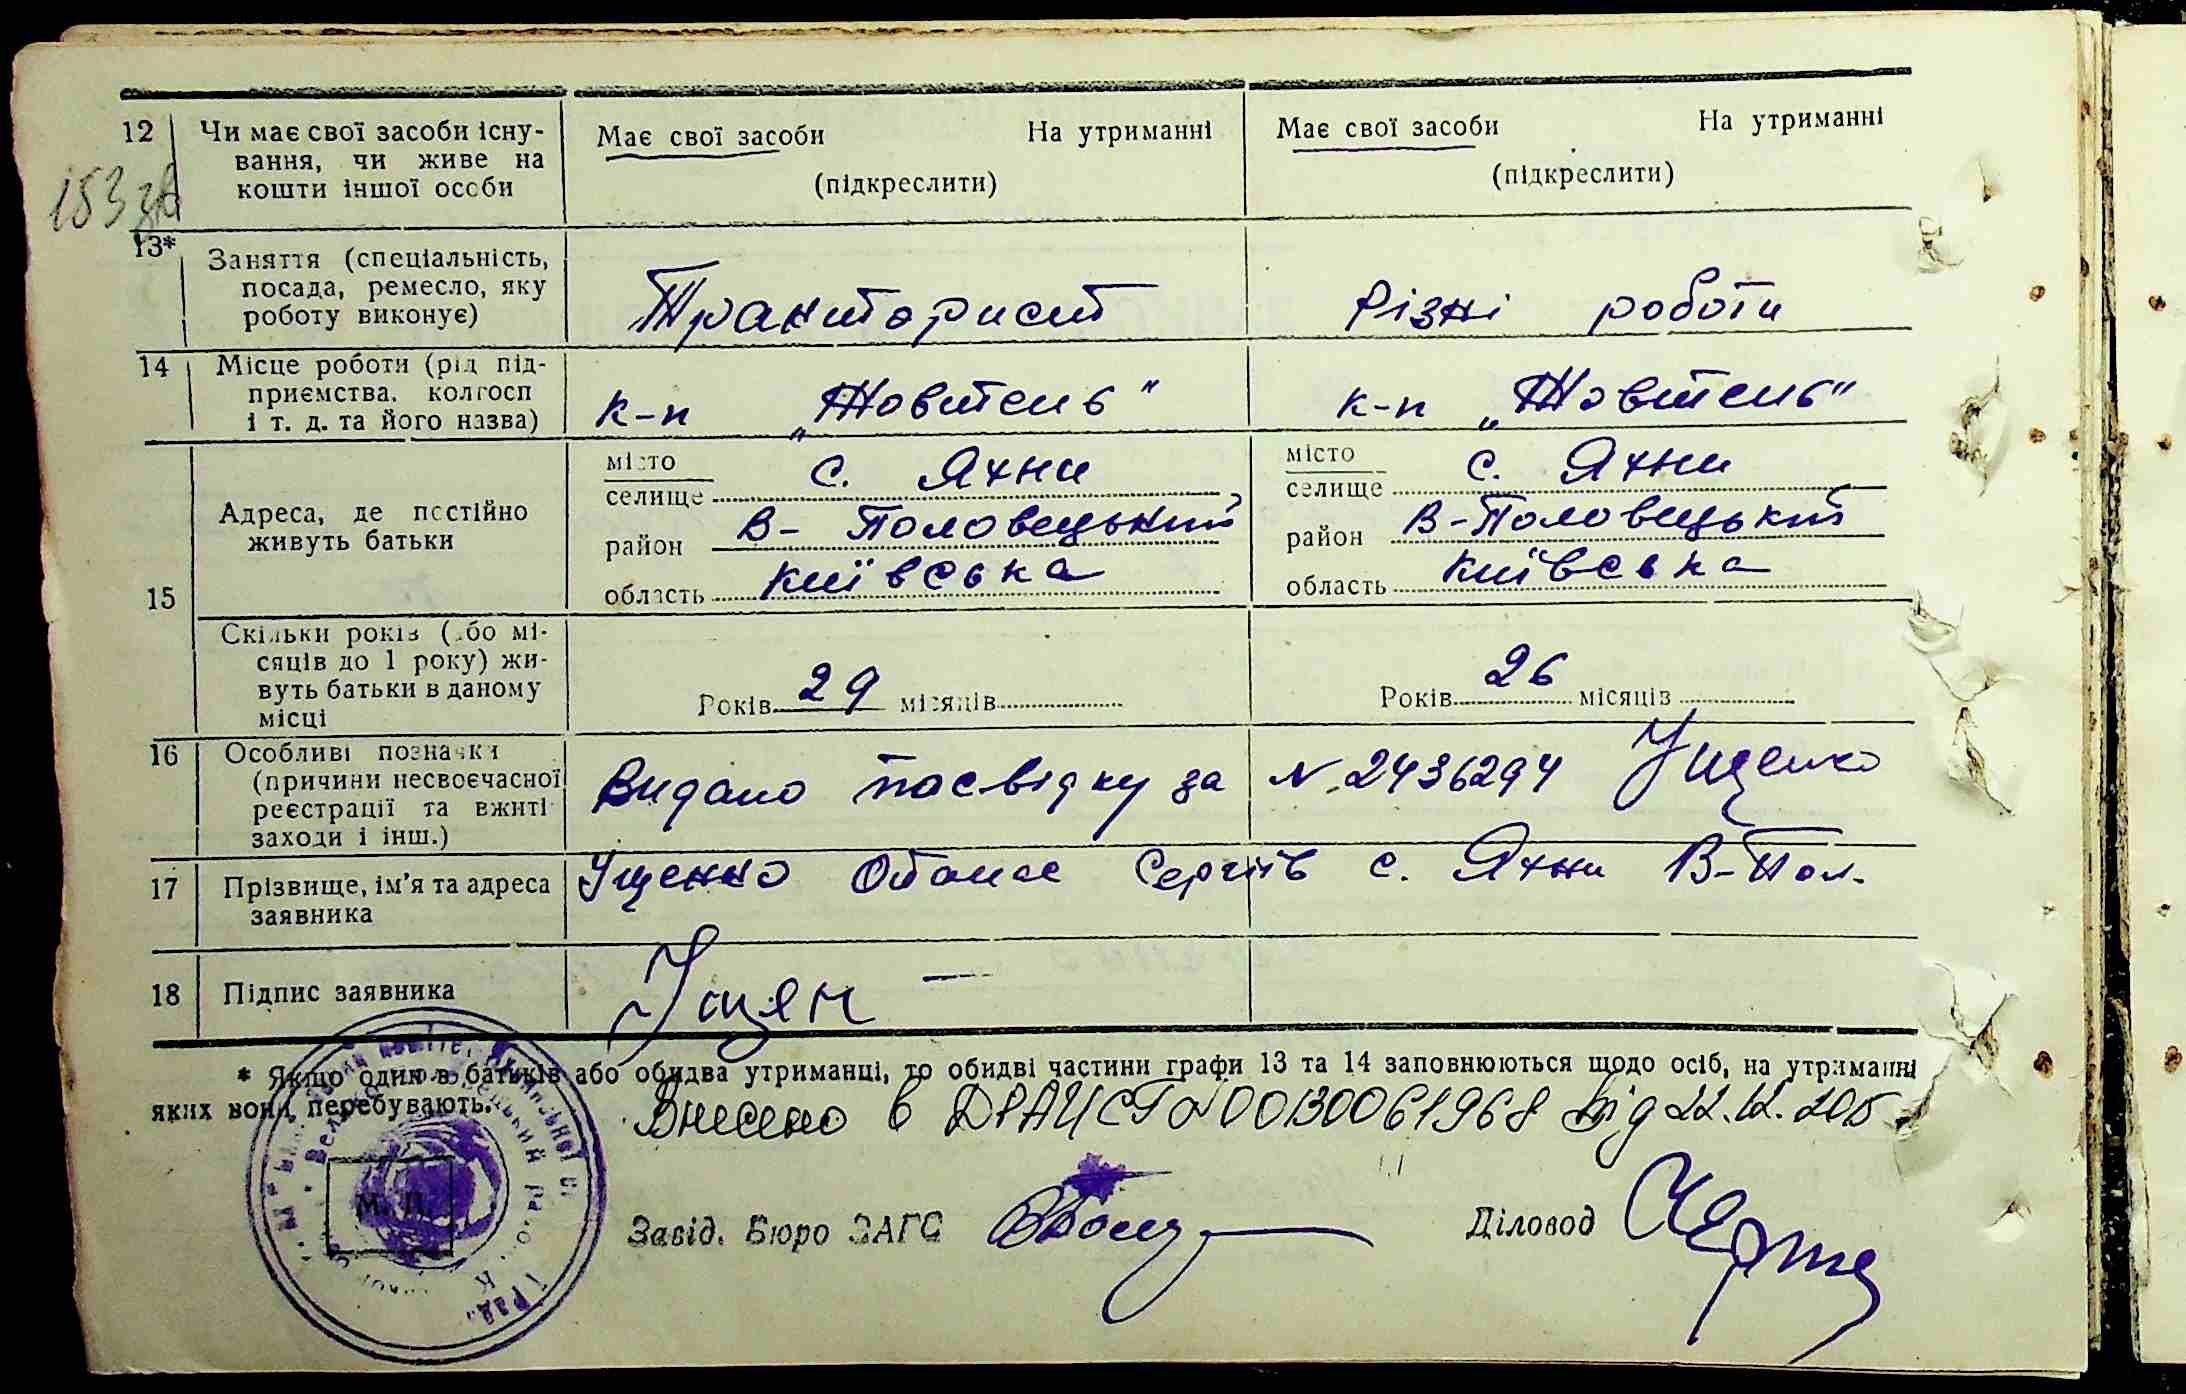 12 Чи має свої засоби існу- Має свої засоби На утриманні Має свої засоби На утриманні
вання, чи живе на
кошти іншої особи (підкреслити) (підкреслити)
153 зв
13* Заняття (спеціальність,
посада, ремесло, яку
роботу виконує) Тракторист Різні роботи
14 Місце роботи (рід під-
приємства, колгосп
і т. д. та його назва) к-п „Жовтень" к-п „Жовтень"
15 Адреса, де постійно
живуть батьки
місто
селище с. Яхни
район В-Половецький
область Київська
місто
селище с. Яхни
район В-Половецький
область Київська
Скільки років (або мі-
сяців до 1 року) жи-
вуть батьки в даному
місці
Років 29 місяців
Років 26 місяців
16 Особливі позначки
(причини несвоєчасної
реєстрації та вжиті
заходи і інш.)
Видано посвідку за N 2436294 Ущенко
17 Прізвище, ім'я та адреса
заявника
Ущенко Опанас Сергіїв с. Яхни В-Пол.
18 Підпис заявника
* Якщо один з батьків або обидва утриманці, то обидві частини графи 13 та 14 заповнюються щодо осіб, на утриманні
яких вони перебувають.
Внесено в ДРАЦСГ N 00130061968 від 22.12.2015
М. П.
Завід. Бюро ЗАГС Діловод